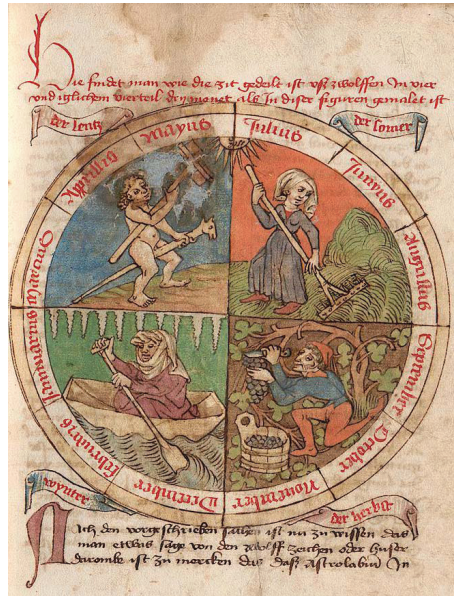 Hie findet man wie die zit gedeilt ist uff zwolffen In vier
vnd iglichem vierteil dry monet als In diser figuren gemalet ist
der lentz
der somer
Apprilis
Mayus
Julius
Junyus
Augustus
September
October
Nouember
December
februarius
Januarius
Marcius
wynter
der herbst
Nach den vorgeschrieben saltzen ist nu zu wissen das
man etwas sage von den zwolff zeichen oder huser
daromb ist zu mercken das daß Astrolabiu In